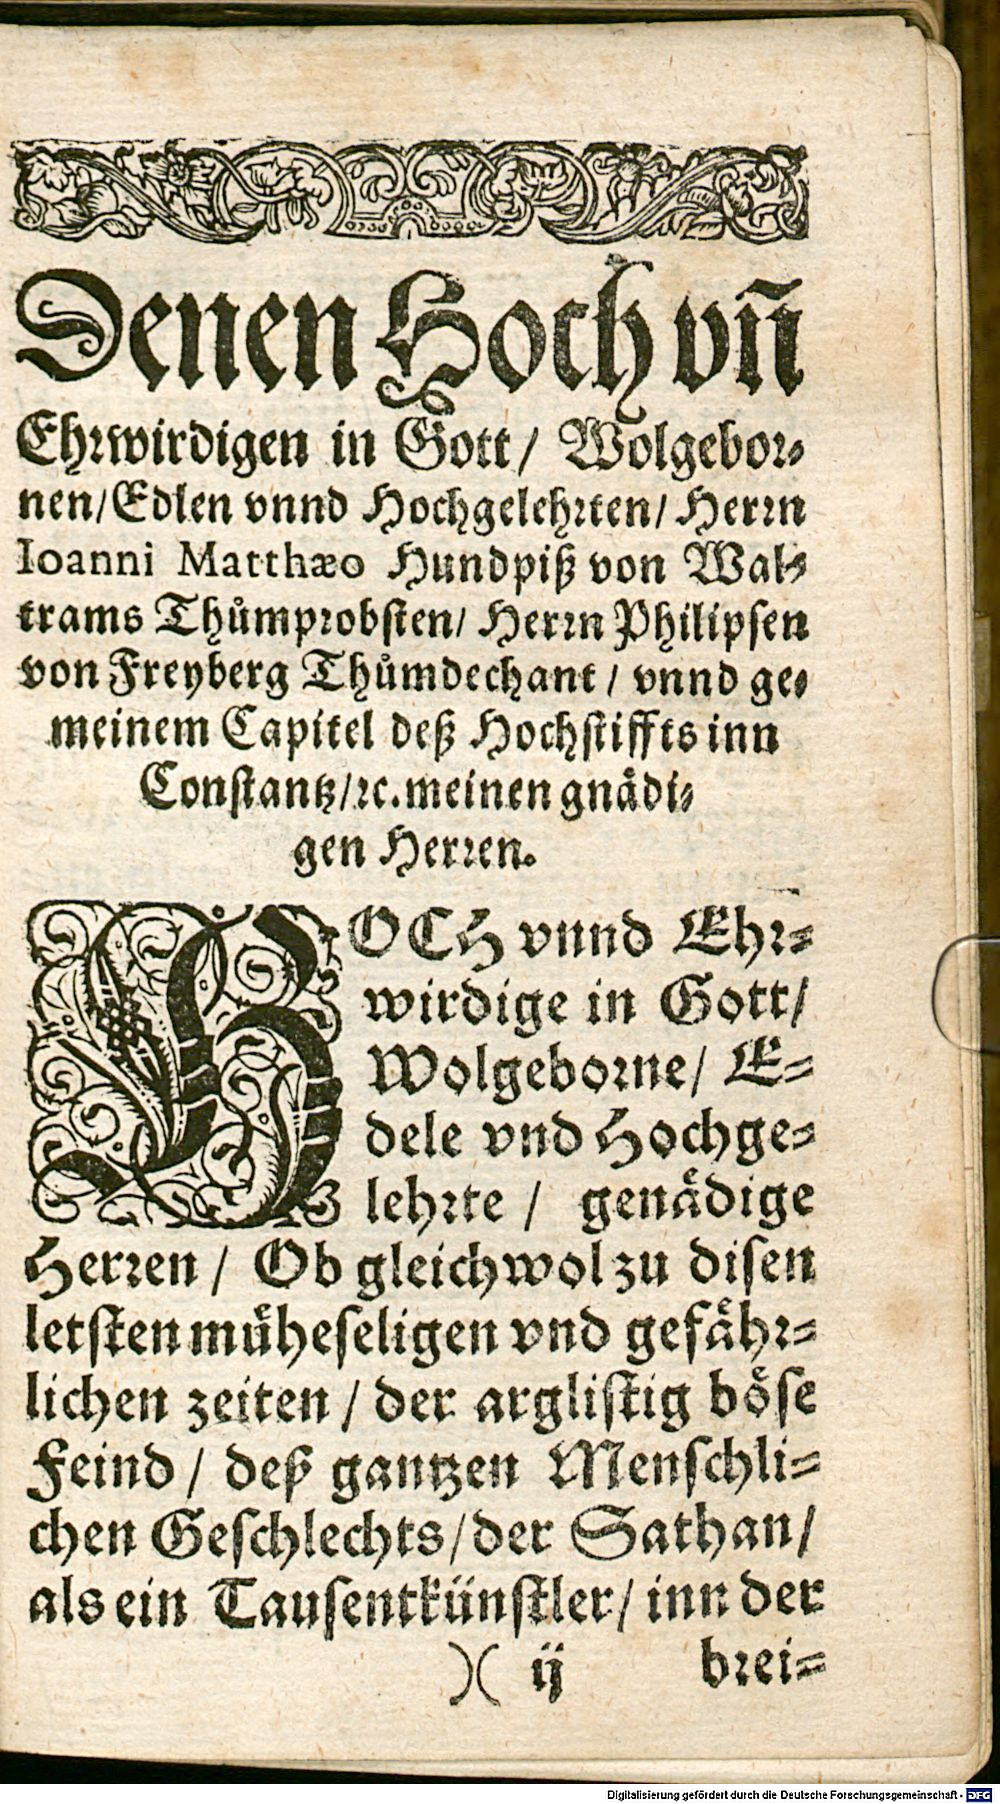 Denen Hoch vñ
Ehrwirdigen in Gott/ Wolgebor-
nen/Edlen vnnd Hochgelehrten/ Herrn
Ioanni Matthæo Hundpiß von Wal-
trams Thůmprobsten/ Herrn Philipsen
von Freyberg Thůmdechant/ vnnd ge-
meinem Capitel deß Hochstiffts inn
Constantz/ꝛc. meinen gnaͤdi-
gen Herren.
HOCH vnnd Ehr-
wirdige in Gott/
Wolgeborne/ E-
dele vnd Hochge-
lehrte/ genaͤdige
Herren/ Ob gleichwol zu disen
letsten muͤheseligen vnd gefaͤhr-
lichen zeiten/ der arglistig boͤse
Feind/ deß gantzen Menschli-
chen Geschlechts/der Sathan/
als ein Tausentkünstler/ inn der
)( ij brei-
Digitalisierung gefördert durch die Deutsche Forschungsgemeinschaft - DFG